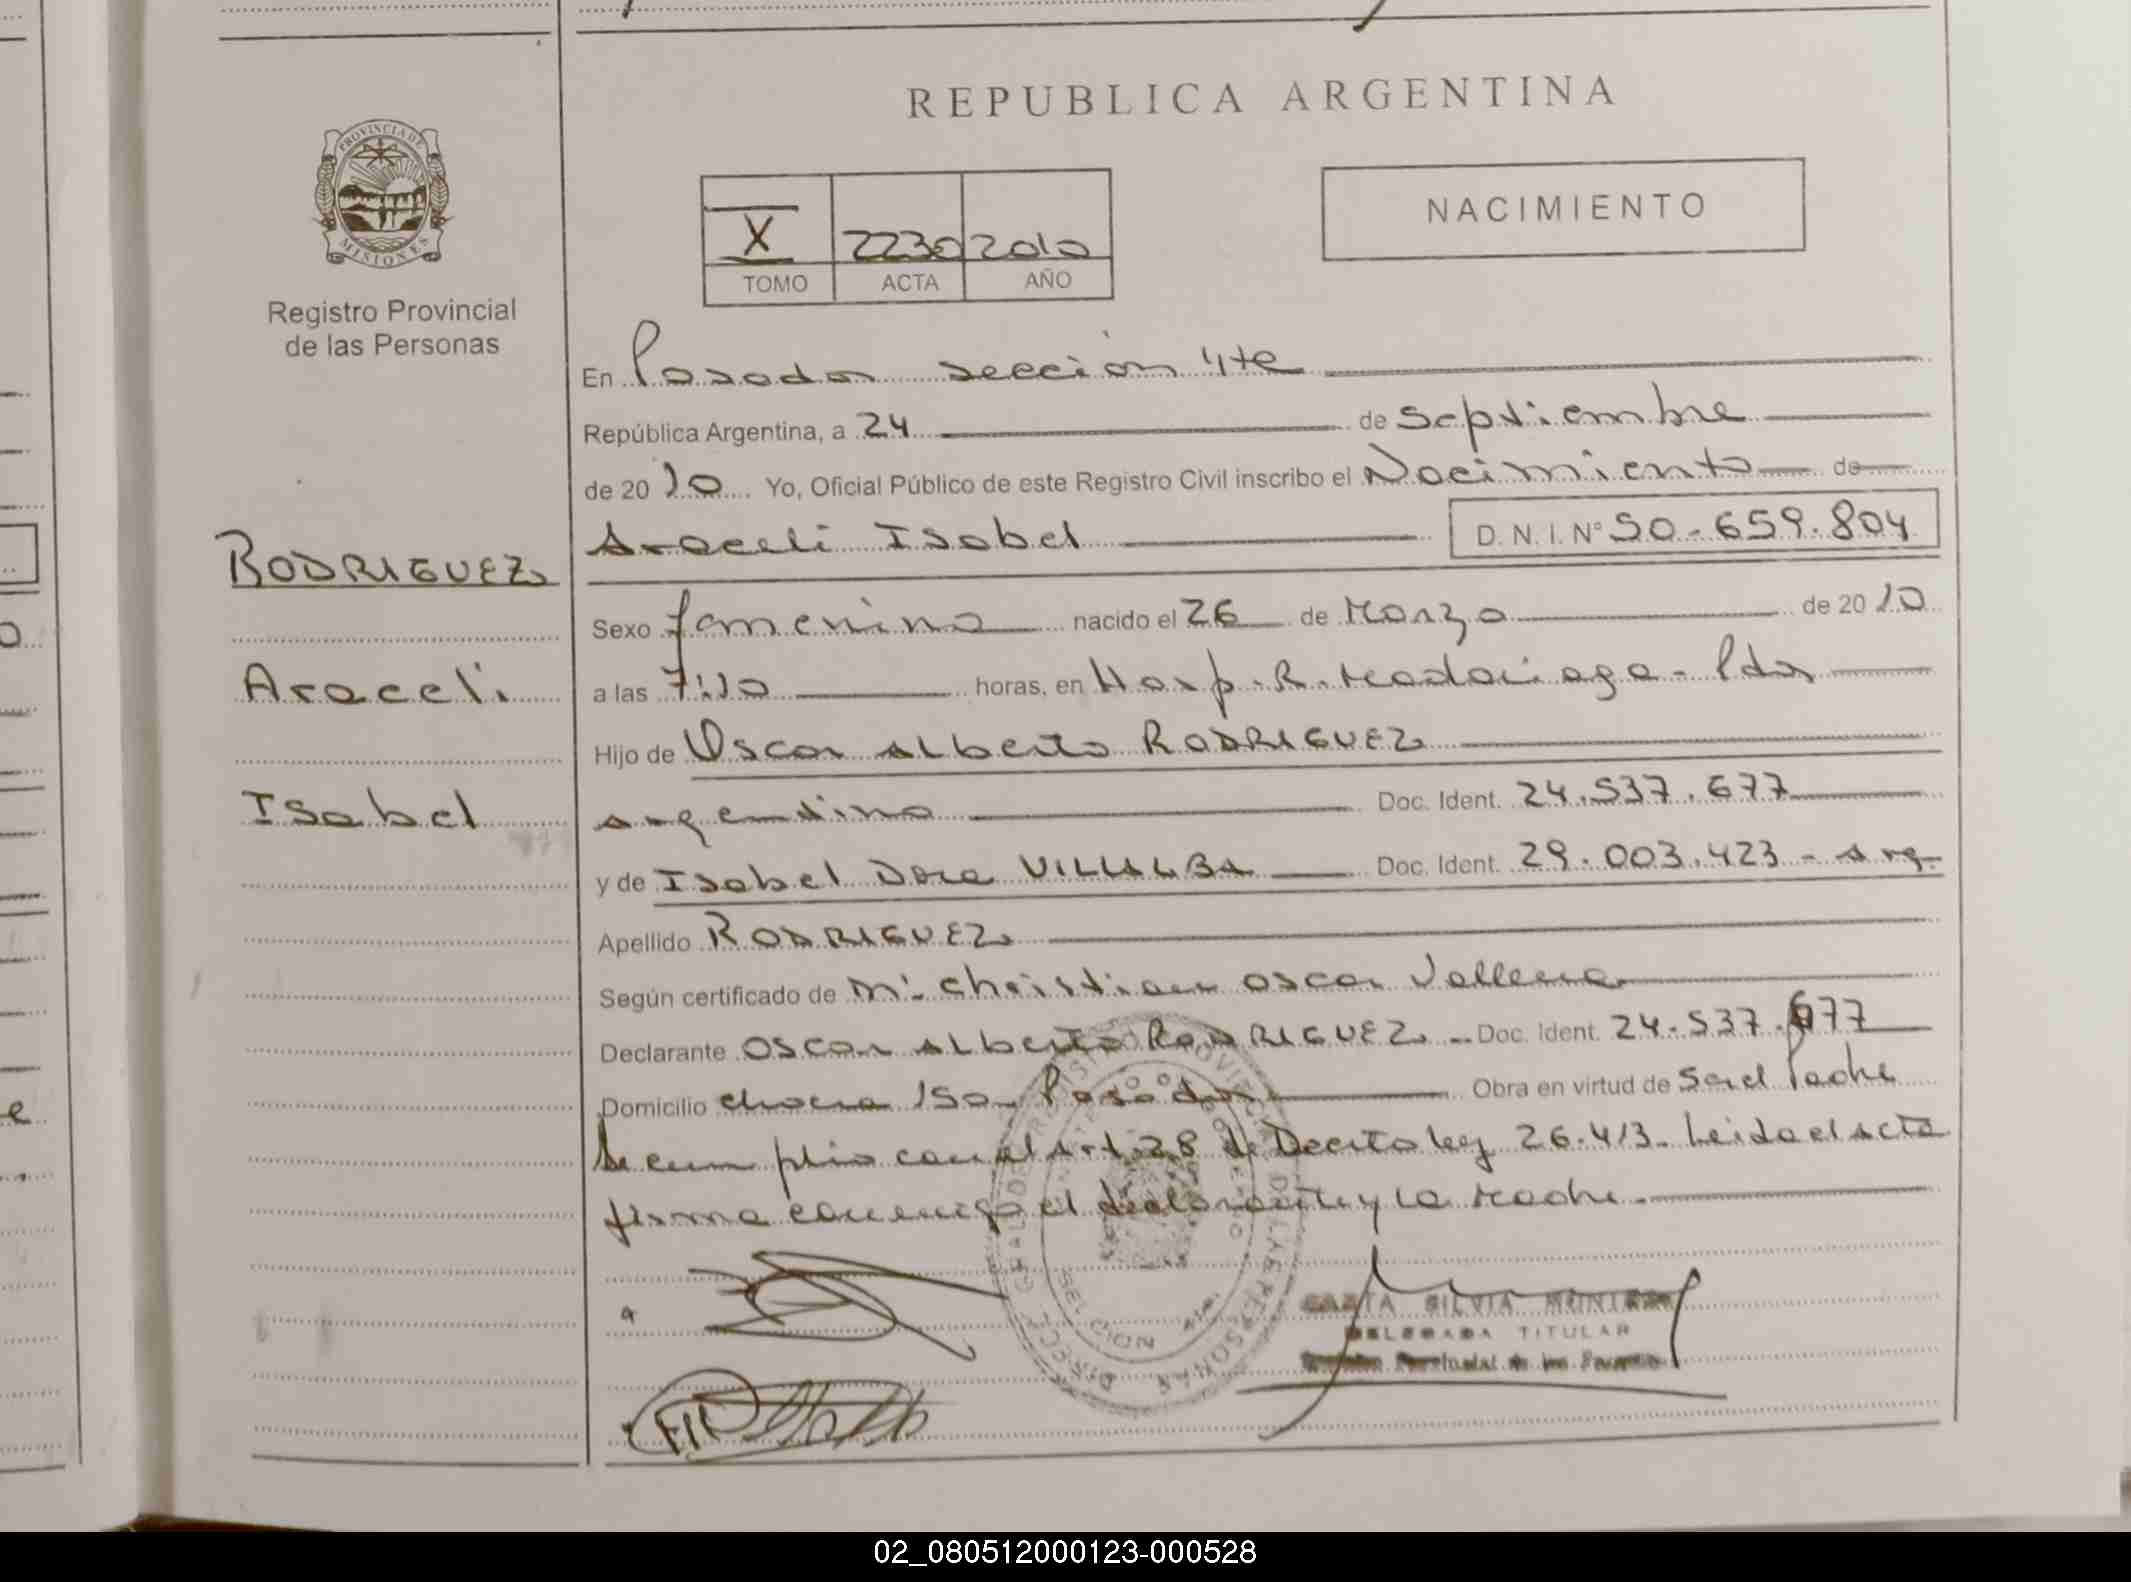 REPUBLICA ARGENTINA
PROVINCIA DE
MISIONES
Registro Provincial
de las Personas
X 2230 2010
TOMO ACTA AÑO
NACIMIENTO
En Posadas sección 4ta
República Argentina, a 24 de Septiembre
de 2010 Yo, Oficial Público de este Registro Civil inscribo el Nacimiento de
Araceli Isabel D. N. I. N° 50.659.804
RODRIGUEZ
Araceli
Isabel
Sexo femenino nacido el 26 de Marzo de 2010
a las 7:10 horas, en Hosp. R. Madariaga - Pdas
Hijo de Oscar Alberto RODRIGUEZ
argentino Doc. Ident. 24.537.677
y de Isabel Dora VILLALBA Doc. Ident. 29.003.423 - Arg.
Apellido RODRIGUEZ
Según certificado de Christian Oscar
Declarante Oscar Alberto RODRIGUEZ Doc. Ident. 24.537.677
Domicilio chacra 150 - Posadas Obra en virtud de Padre
Se cumplio con el Art. 28 de Decreto ley 26.413. Leida el acta
firma conmigo el declarante y la Madre.
SILVIA
DELEGADA TITULAR
Provincial de las Personas
02_080512000123-000528